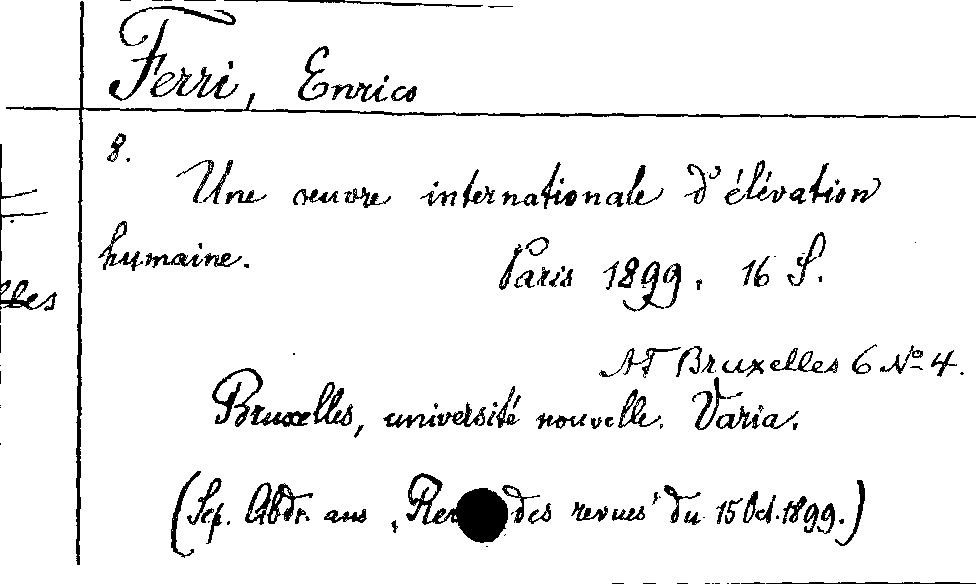 Ferri, Enrico
8.
Une oeuvre internationale d'élévation
humaine.
Paris 1899. 16 S.
lles
AT Bruxelles 6 No 4.
Bruxelles, université nouvelle. Varia.
(Sep. Abdr. aus „Rev des revues" du 15 Oct. 1899.)